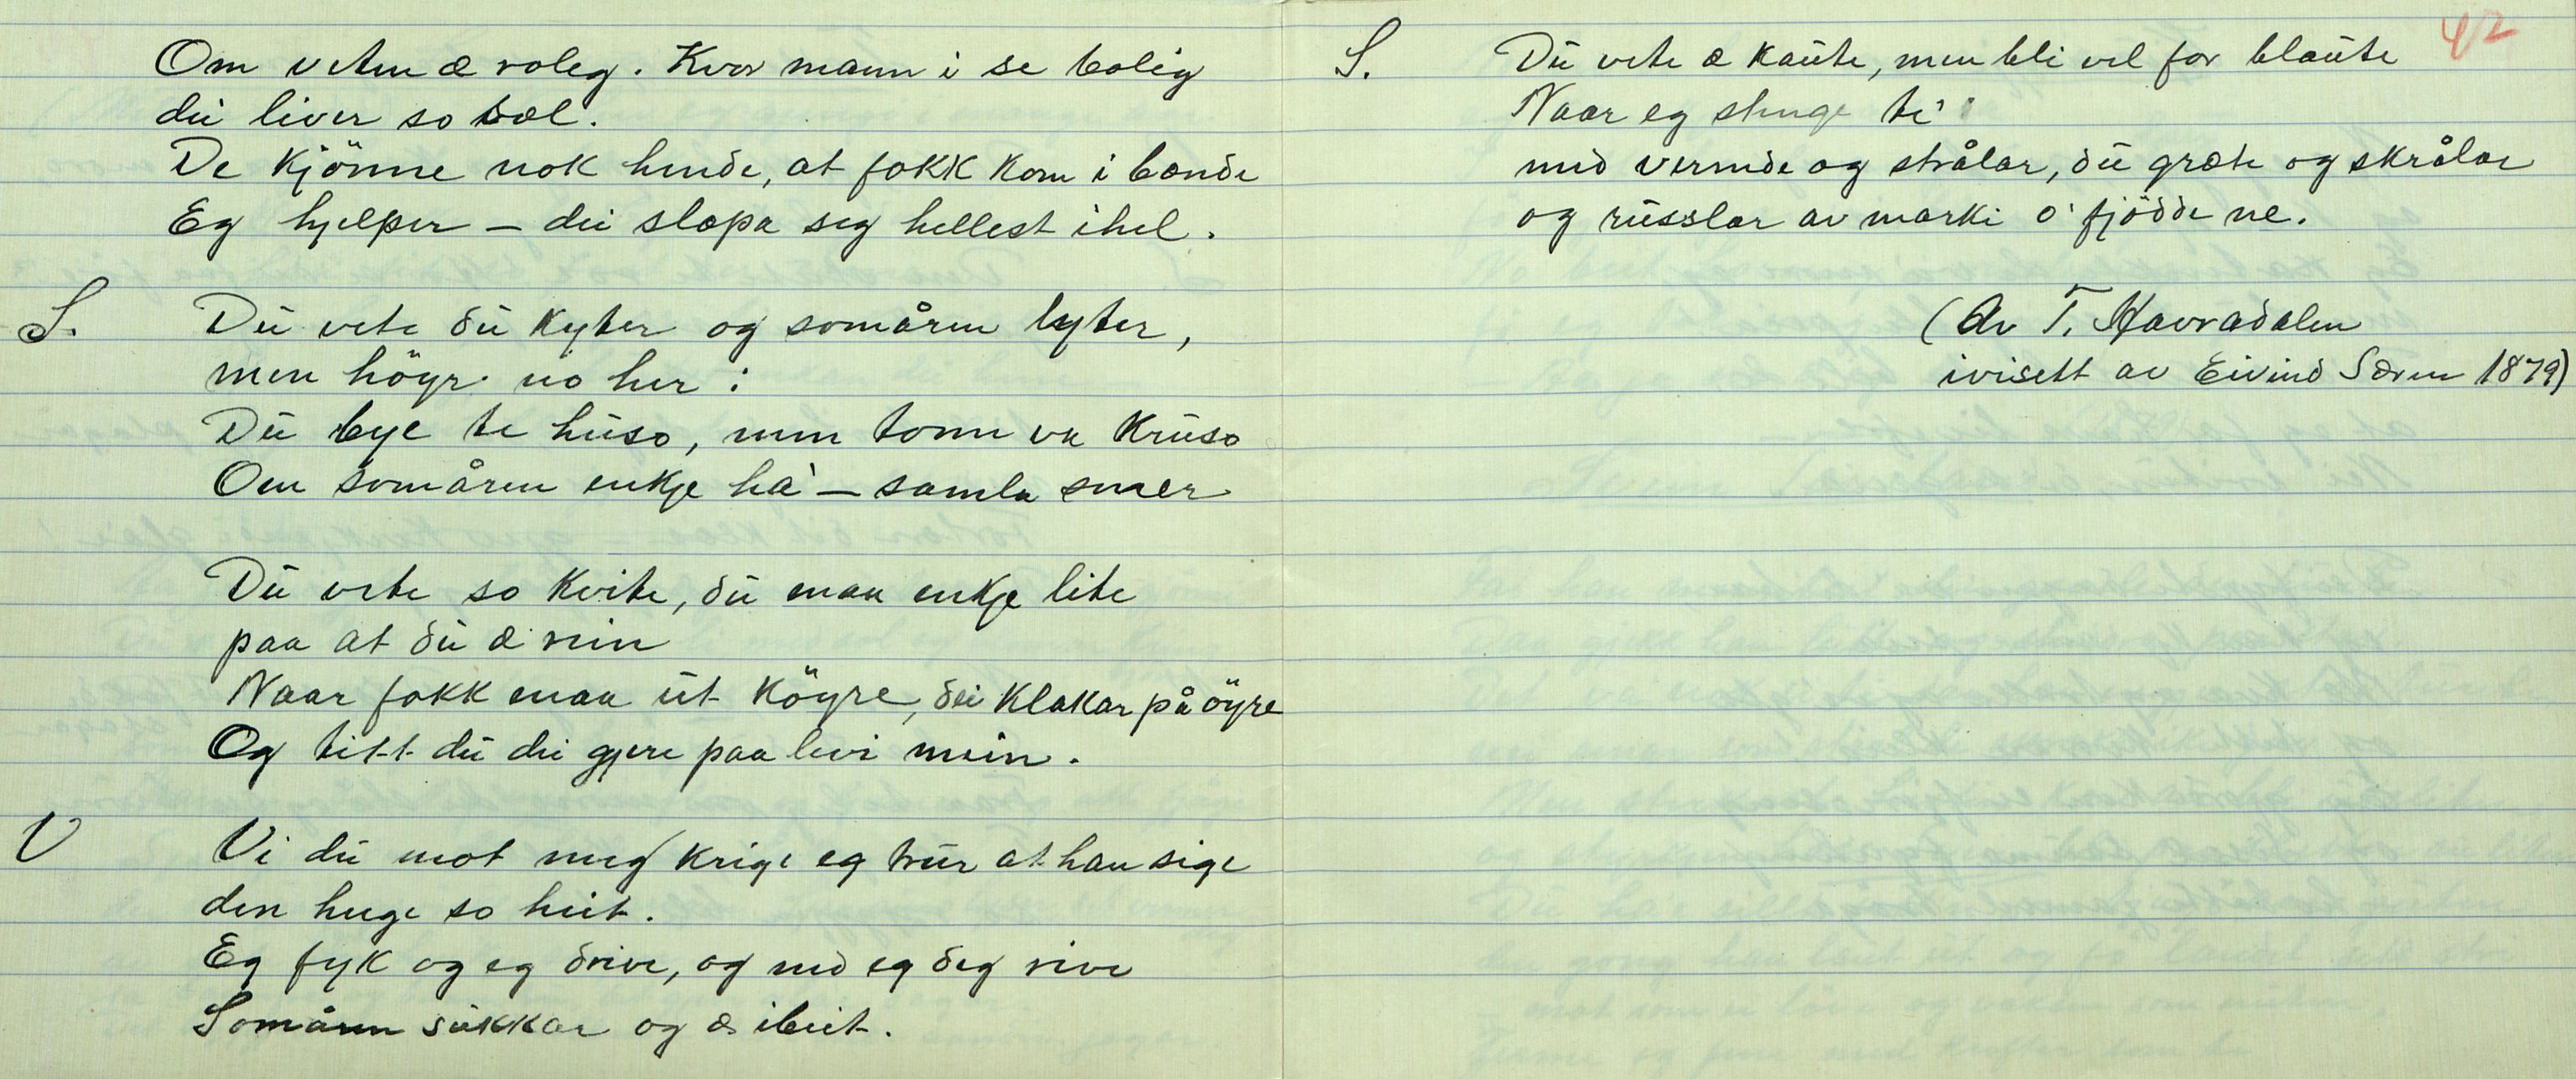 Om veten æ roleg. Kvar mann i se bolig
dei liver so vael.
De kjönne nok hende, at fokk kom i bænde
Eg hjelper – dei slæpa seg hellest ihel.
S. Dü vete dü kyter og somåren lyter,
men höyr no her:
Dü bye te hüso, men tonn va krüso
Om somåren enkje ha' – samla smær
Dü vete so kvite, dü maa enkje lite
paa at dü æ rein
Naar fokk maa üt köyre, dei klakar på öyre
Og titt dü dei gjere paa livi mein.
V Vi dü mot meg krige eg trür at han sige
den huge so heit.
Eg fyk og eg drive, og med eg deg rive
Somåren sükkar og æ ibeit.
42
S. Dü vete æ kaüte, men bli vel for blaüte
Naar eg stenge te'
med vermde og strålar, dü græte og skrålar
og rüsslar av marki o' fjödde ne.
(Av T. Havradalen
ivisett av Eivind Særen 1879)